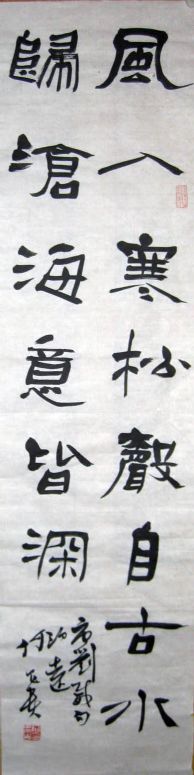 風入寒松聲自古水
歸滄海意皆深